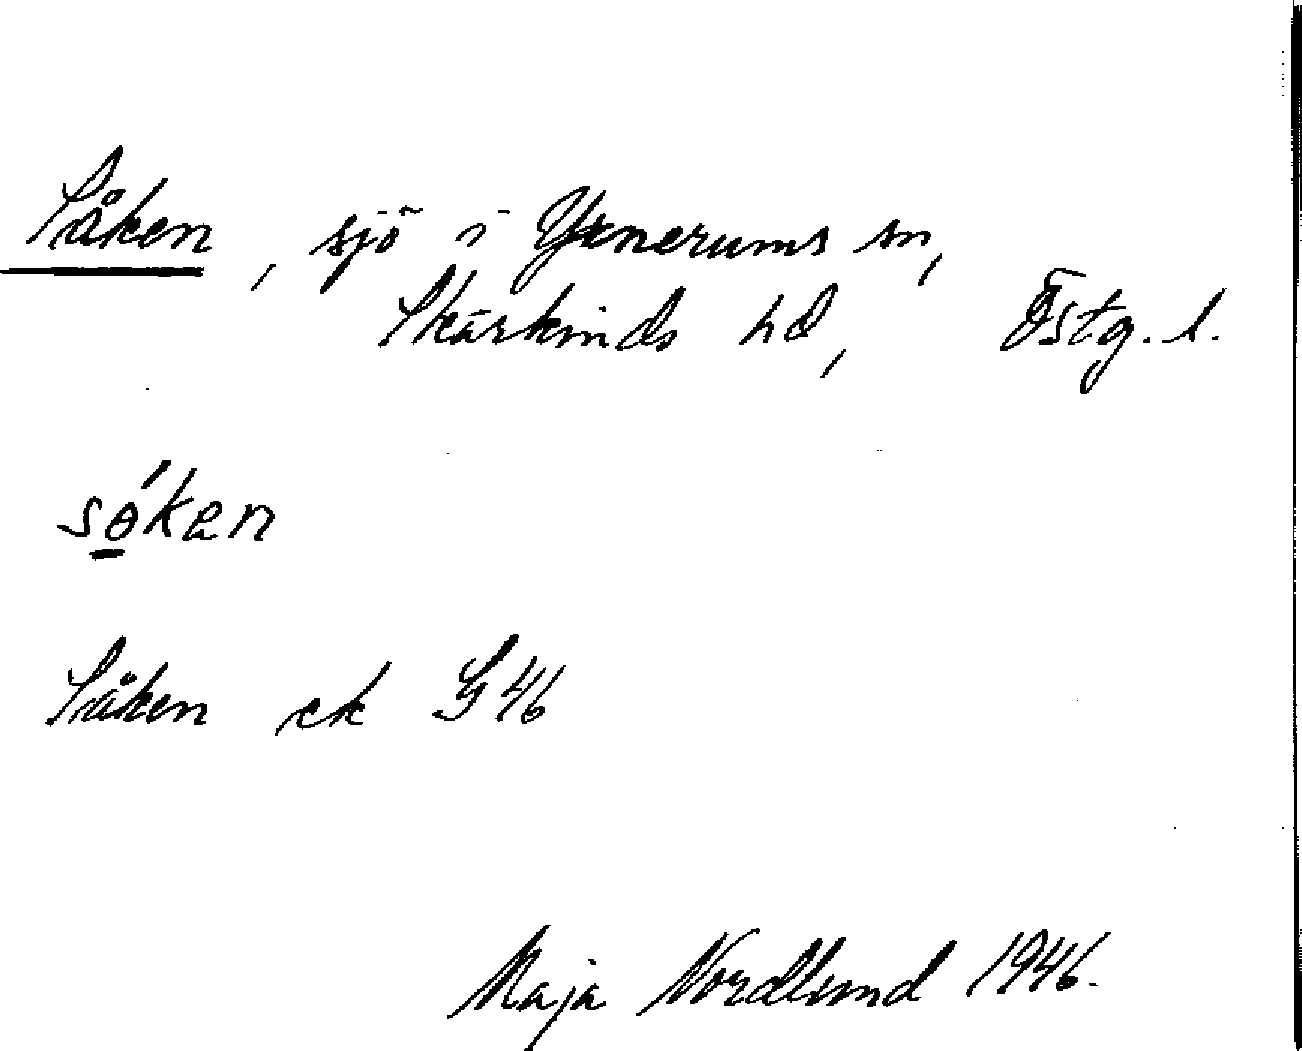 Såken, sjö i Yxnerums sn,
Skärkinds hd, Östg. l.
sǿken
Såken ek G 46
Maja Nordlund 1946.